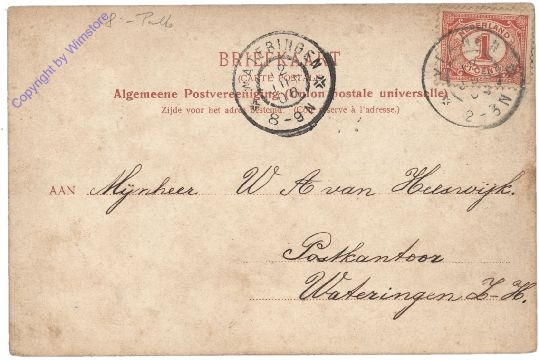 Copyright by Wimstore
BRIEFKAART
(CARTE POSTALE)
Algemeene Postvereeniging (Union postale universelle)
Zijde voor het adres bestemd. (Côté réservé à l'adresse.)
NEDERLAND
1
CENT
WATERINGEN
8-9N
2-3N
AAN Mijnheer W A van Heeswijk.
Postkantoor
Wateringen Z-H.